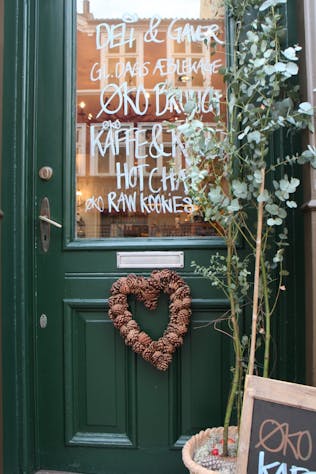 DELI & GAVER
GL. DAGS ÆBLEKAGE
ØKO BRUNCH
ØKO
KAFFE &
HOT
ØKO RAW KOOKIES
ØKO